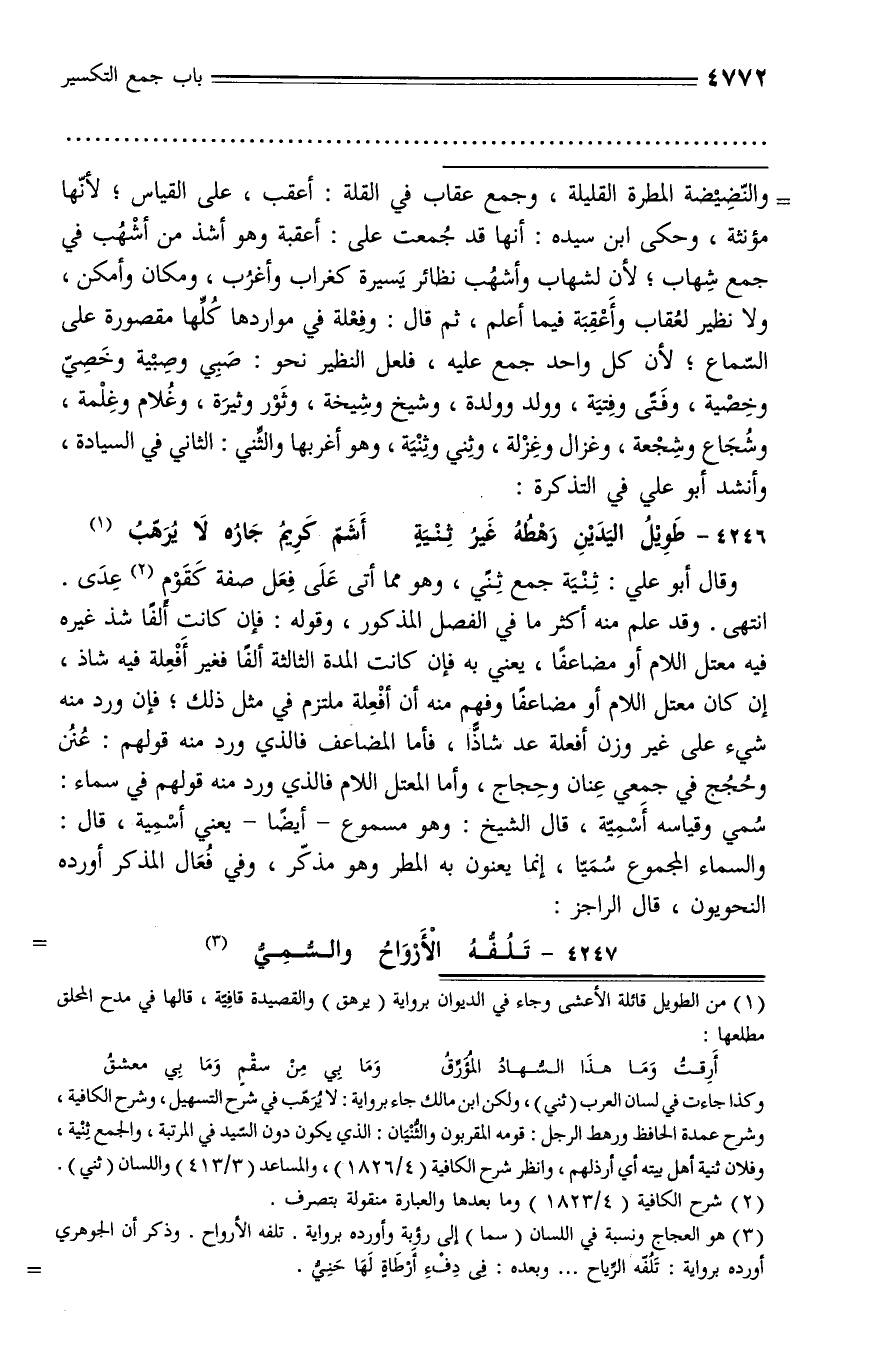 ٤٧٧٢ باب جمع التكسير
= والنّضِيْضة المطرة القليلة ، وجمع عقاب في القلة : أعقب ، على القياس ؛ لأنّها
مؤنثة ، وحكى ابن سيده : أنها قد جُمعت على : أعقبة وهو أشذ من أشْهُب في
جمع شِهاب ؛ لأن لشهاب وأشهُب نظائر يَسيرة كغراب وأغرُب ، ومكان وأمكن ،
ولا نظير لعُقاب وأَعْقِبَة فيما أعلم ، ثم قال : وفِعْلة في مواردها كُلِّها مقصورة على
السّماع ؛ لأن كل واحد جمع عليه ، فلعل النظير نحو : صَبِي وصِبْية وخَصِيّ
وخِصْية ، وفَتًى وفِتيَة ، وولد وولدة ، وشيخ وشِيخة ، وثَوْر وثيرَة ، وغُلام وغِلْمة ،
وشُجَاع وشِجْعة ، وغزال وغِزْلة ، وثِني وثِنْيَة ، وهو أغربها والثِّني : الثاني في السيادة ،
وأنشد أبو علي في التذكرة :
٤٢٤٦ - طَوِيْلُ اليَدَيْنِ رَهْطُهُ غَيرُ ثِـنْـيَةٍ أَشَمّ كَرِيمُ جَارُه لَا يُرَهّبُ (١)
وقال أبو علي : ثِـنْيَة جمع ثِنًي ، وهو مما أتى عَلَى فِعَل صفة كَقَوْمٍ (٢) عِدَى .
انتهى . وقد علم منه أكثر ما في الفصل المذكور ، وقوله : فإن كانت ألفًا شذ غيره
فيه معتل اللام أو مضاعفًا ، يعني به فإن كانت المدة الثالثة ألفًا فغير أَفْعِلة فيه شاذ ،
إن كان معتل اللام أو مضاعفًا وفهم منه أن أفْعِلة ملتزم في مثل ذلك ؛ فإن ورد منه
شيء على غير وزن أفعلة عد شاذًّا ، فأما المضاعف فالذي ورد منه قولهم : عُنُن
وحُجُج في جمعي عِنان وحِجاج ، وأما المعتل اللام فالذي ورد منه قولهم في سماء :
سُمي وقياسه أَسْمِيّة ، قال الشيخ : وهو مسموع - أيضًا - يعني أسْمِية ، قال :
والسماء المجموع سُمَيّا ، إنما يعنون به المطر وهو مذكّر ، وفي فُعَال المذكر أورده
النحويون ، قال الراجز :
٤٢٤٧ - تَـلُـفُّـهُ الْأَرْوَاحُ والـسُّـمِـيُّ (٣) =
(١) من الطويل قائلة الأعشى وجاء في الديوان برواية ( يرهق ) والقصيدة قافِيّة ، قالها في مدح المحلق
مطلعها :
أَرِقـتُ وَمَـا هـذَا الـسُّـهـادُ المُؤَرِّقُ وَمَا بِي مِنْ سقْمٍ وَمَا بِي معشقُ
وكذا جاءت في لسان العرب ( ثني ) ، ولكن ابن مالك جاء برواية : لا يُرَهّب في شرح التسهيل ، وشرح الكافية ،
وشرح عمدة الحافظ ورهط الرجل : قومه المقربون والثُّنْيَان : الذي يكون دون السّيد في المرتبة ، والجمع ثِنْية ،
وفلان ثنية أهل بيته أي أرذلهم ، وانظر شرح الكافية ( ١٨٢٦/٤ ) ، والمساعد ( ٤١٣/٣ ) واللسان ( ثني ) .
(٢) شرح الكافية ( ١٨٢٣/٤ ) وما بعدها والعبارة منقولة بتصرف .
(٣) هو العجاج ونسبة في اللسان ( سما ) إلى رؤبة وأورده برواية . تلفه الأرواح . وذكر أن الجوهري
أورده برواية : تَلُفّه الرِّياح ... وبعده : فِى دِفْءِ أَرْطَاةٍ لَهَا حَنِيُّ . =